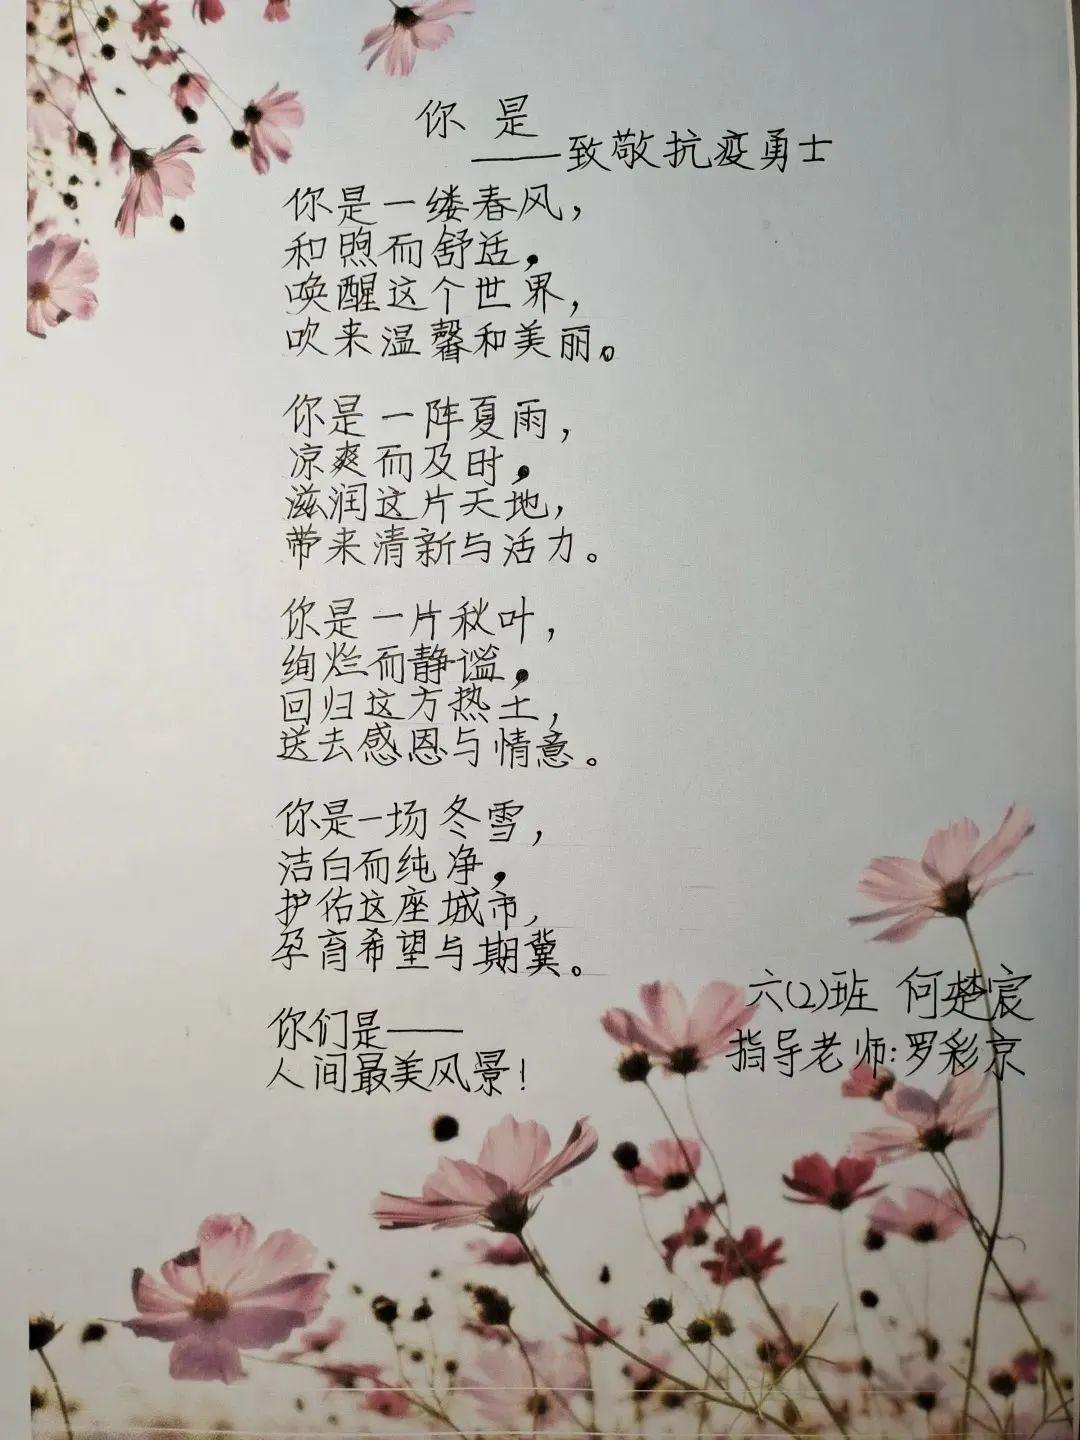 你是
——致敬抗疫勇士
你是一缕春风，
和煦而舒适，
唤醒这个世界，
吹来温馨和美丽。
你是一阵夏雨，
凉爽而及时，
滋润这片天地，
带来清新与活力。
你是一片秋叶，
绚烂而静谧，
回归这方热土，
送去感恩与情意。
你是一场冬雪，
洁白而纯净，
护佑这座城市，
孕育希望与期冀。
你们是——
人间最美风景！
六(2)班 何楚宸
指导老师:罗彩京